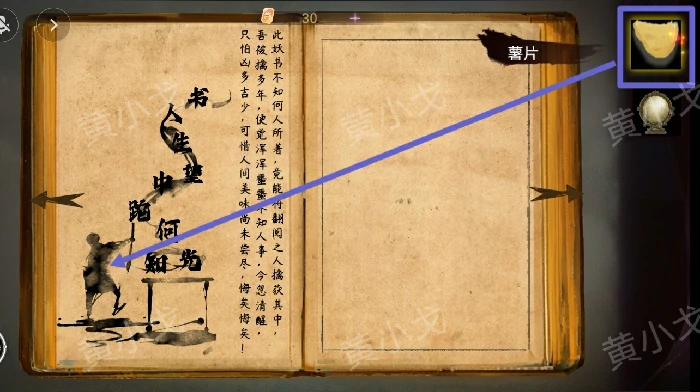 30
薯片
此妖书不知何人所著，竟能将翻阅之人擒获其中，
吾被擒多年，使觉浑浑噩噩不知人事，今忽清醒，
只怕凶多吉少，可惜人间美味尚未尝尽，悔矣悔矣！
书
人
生
中
堂
陷
何
知
黄小戈
黄小戈
黄小戈
黄小戈
黄小戈
黄小戈